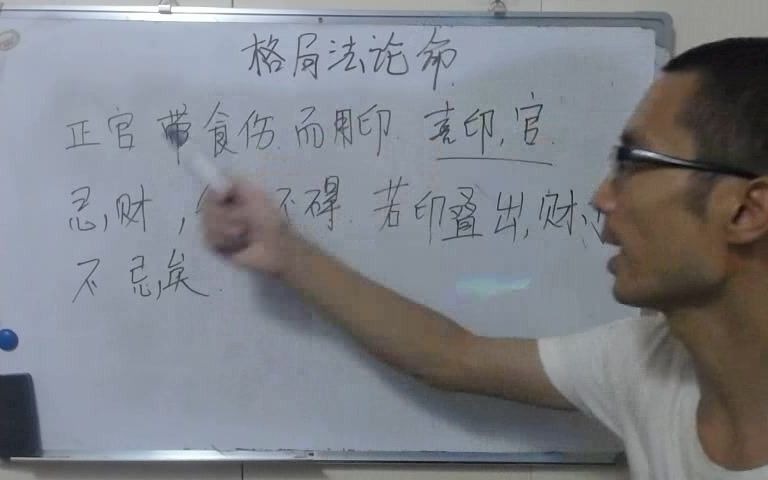 格局法论命
正官带食伤而用印 喜印,官.
忌,财, 不得. 若印叠出,财,
不忌,矣.